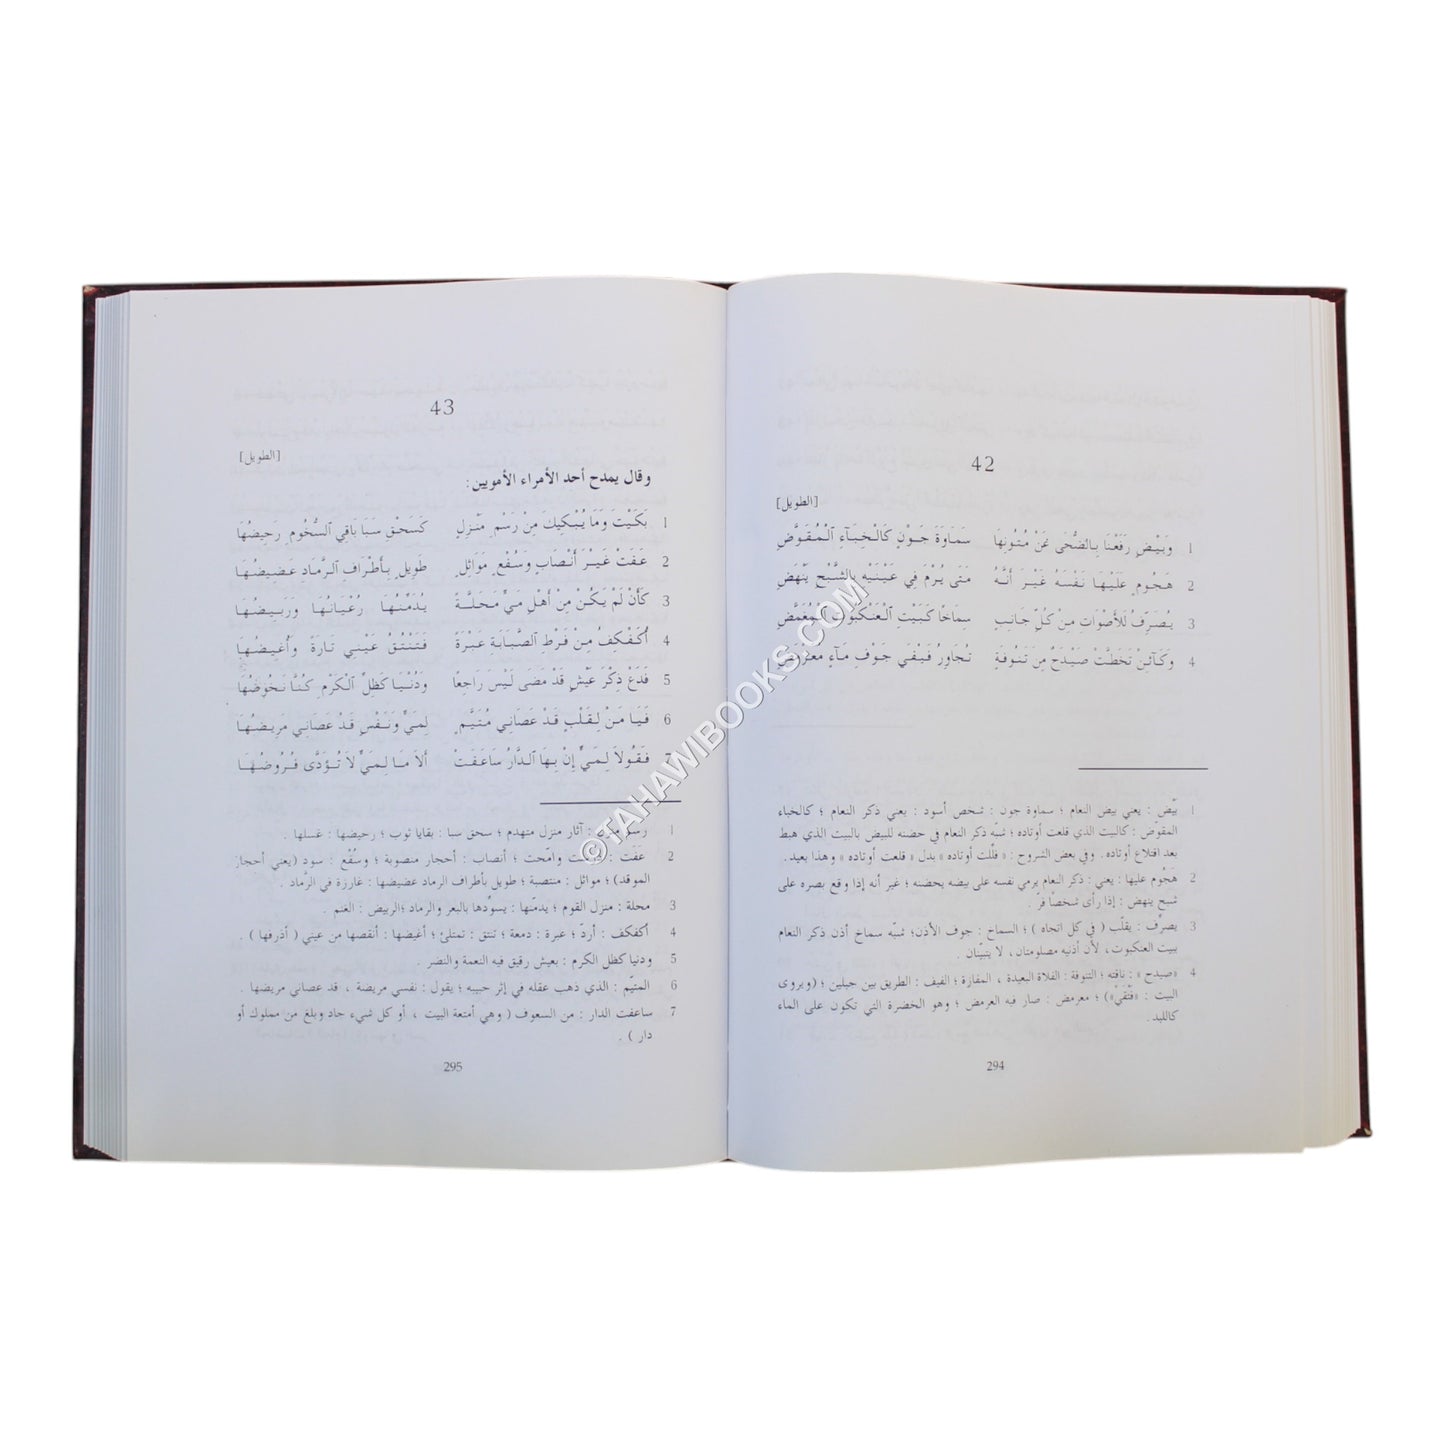 42
[الطويل]
1 وَبَيْضٍ رَفَعْنَا بِالضُّحَى عَنْ مُتُونِهَا سَمَاوَةَ جَوْنٍ كَالْخِبَآءِ الْمُقَوَّضِ
2 هَجُومٍ عَلَيْهَا نَفْسَهُ غَيْرَ أَنَّهُ مَتَى يُرْمَ فِي عَيْنَيْهِ بِالشَّبْحِ يَنْهَضِ
3 يُصَرِّفُ لِلأَصْوَاتِ مِنْ كُلِّ جَانِبٍ سِمَاخًا كَبَيْتِ الْعَنْكَبُوتِ الْمُغَمَّضِ
4 وَكَآئِنْ تَخَطَّتْ صَيْدَحُ مِنْ تَنُوفَةٍ تُجَاوِرُ فَيْفَي جَوْفِ مَآءٍ
1 بَيْض : يعني بيض النعام ؛ سماوة جون : شخص أسود : يعني ذكر النعام ؛ كالخباء
المقوّض : كالبيت الذي قلعت أوتاده ؛ شبّه ذكر النعام في حضنه للبيض بالبيت الذي هبط
بعد اقتلاع أوتاده . وفي بعض الشروح : « فلّلت أوتاده » بدل « قلعت أوتاده » وهذا بعيد .
2 هَجُوم عليها : يعني : ذكر النعام يرمي نفسه على بيضه يحضنه ؛ غير أنه إذا وقع بصره على
شبح ينهض : إذا رأى شخصاً فرّ .
3 يصرّف : يقلّب ( في كل اتجاه ) ؛ السماخ : جوف الأذن؛ شبّه سماخ أذن ذكر النعام
ببيت العنكبوت ، لأن أذنيه مصلومتان ، لا يتبيّنان .
4 «صيدح » : ناقته ؛ التنوفة : الفلاة البعيدة ، المفازة ؛ الفيف : الطريق بين جبلين ؛ (ويروى
البيت : ) ؛ معرمض : صار فيه العرمض ؛ وهو الخضرة التي تكون على الماء
كاللبد .
294
43
[الطويل]
وقال يمدح أحد الأمراء الأمويين :
1 بَكَيْتَ وَمَا يُبْكِيكَ مِنْ رَسْمِ مَنْزِلٍ كَسَحْقِ سَبَا بَاقِي السُّخُومِ رَحِيضُهَا
2 عَفَتْ غَيْرَ أَنْصَابٍ وَسُفْعٍ مَوَاثِلٍ طَوِيلٍ بِأَطْرَافِ الرَّمَادِ عَضِيضُهَا
3 كَأَنْ لَمْ يَكُنْ مِنْ أَهْلِ مَيٍّ مَحَلَّةً يُدَمِّنُهَا رُعْيَانُهَا وَرَبِيضُهَا
4 أُكَفْكِفُ مِنْ فَرْطِ الصَّبَابَةِ عَبْرَةً فَتَنْتَقُ عَيْنِي تَارَةً وَأُغِيضُهَا
5 فَدَعْ ذِكْرَ عَيْشٍ قَدْ مَضَى لَيْسَ رَاجِعًا وَدُنْيَا كَظِلِّ الْكَرْمِ كُنَّا نَخُوضُهَا
6 فَيَا مَنْ لِقَلْبٍ قَدْ عَصَانِي مُتَيَّمٍ لِمَيٍّ وَنَفْسٍ قَدْ عَصَانِي مَرِيضُهَا
7 فَقُولاَ لِمَيٍّ إِنْ بِهَا الدَّارُ سَاعَفَتْ أَلاَ مَا لِمَيٍّ لاَ تُؤَدَّى فُرُوضُهَا
1 رسم منزل : آثار منزل متهدم ؛ سحق سبا : بقايا ثوب ؛ رحيضها : غسلها .
2 عَفَت : وامّحت ؛ أنصاب : أحجار منصوبة ؛ وسُفْع : سود (يعني أحجار
الموقد) ؛ مواثل : منتصبة ؛ طويل بأطراف الرماد عضيضها : غارزة في الرّماد .
3 محلة : منزل القوم ؛ يدمّنها : يسوّدها بالبعر والرماد ؛الربيض : الغنم .
4 أكفكف : أردّ ؛ عبرة : دمعة ؛ تنتق : تمتلئ ؛ أغيضها : أنقصها من عيني ( أذرفها ) .
5 ودنيا كظل الكرم : بعيش رقيق فيه النعمة والنضر .
6 المتيّم : الذي ذهب عقله في إثر حبيبه ؛ يقول : نفسي مريضة ، قد عصاني مريضها .
7 ساعفت الدار : من السعوف ( وهي أمتعة البيت ، أو كل شيء جاد وبلغ من مملوك أو
دار ) .
295
©TAHAWIBOOKS.COM